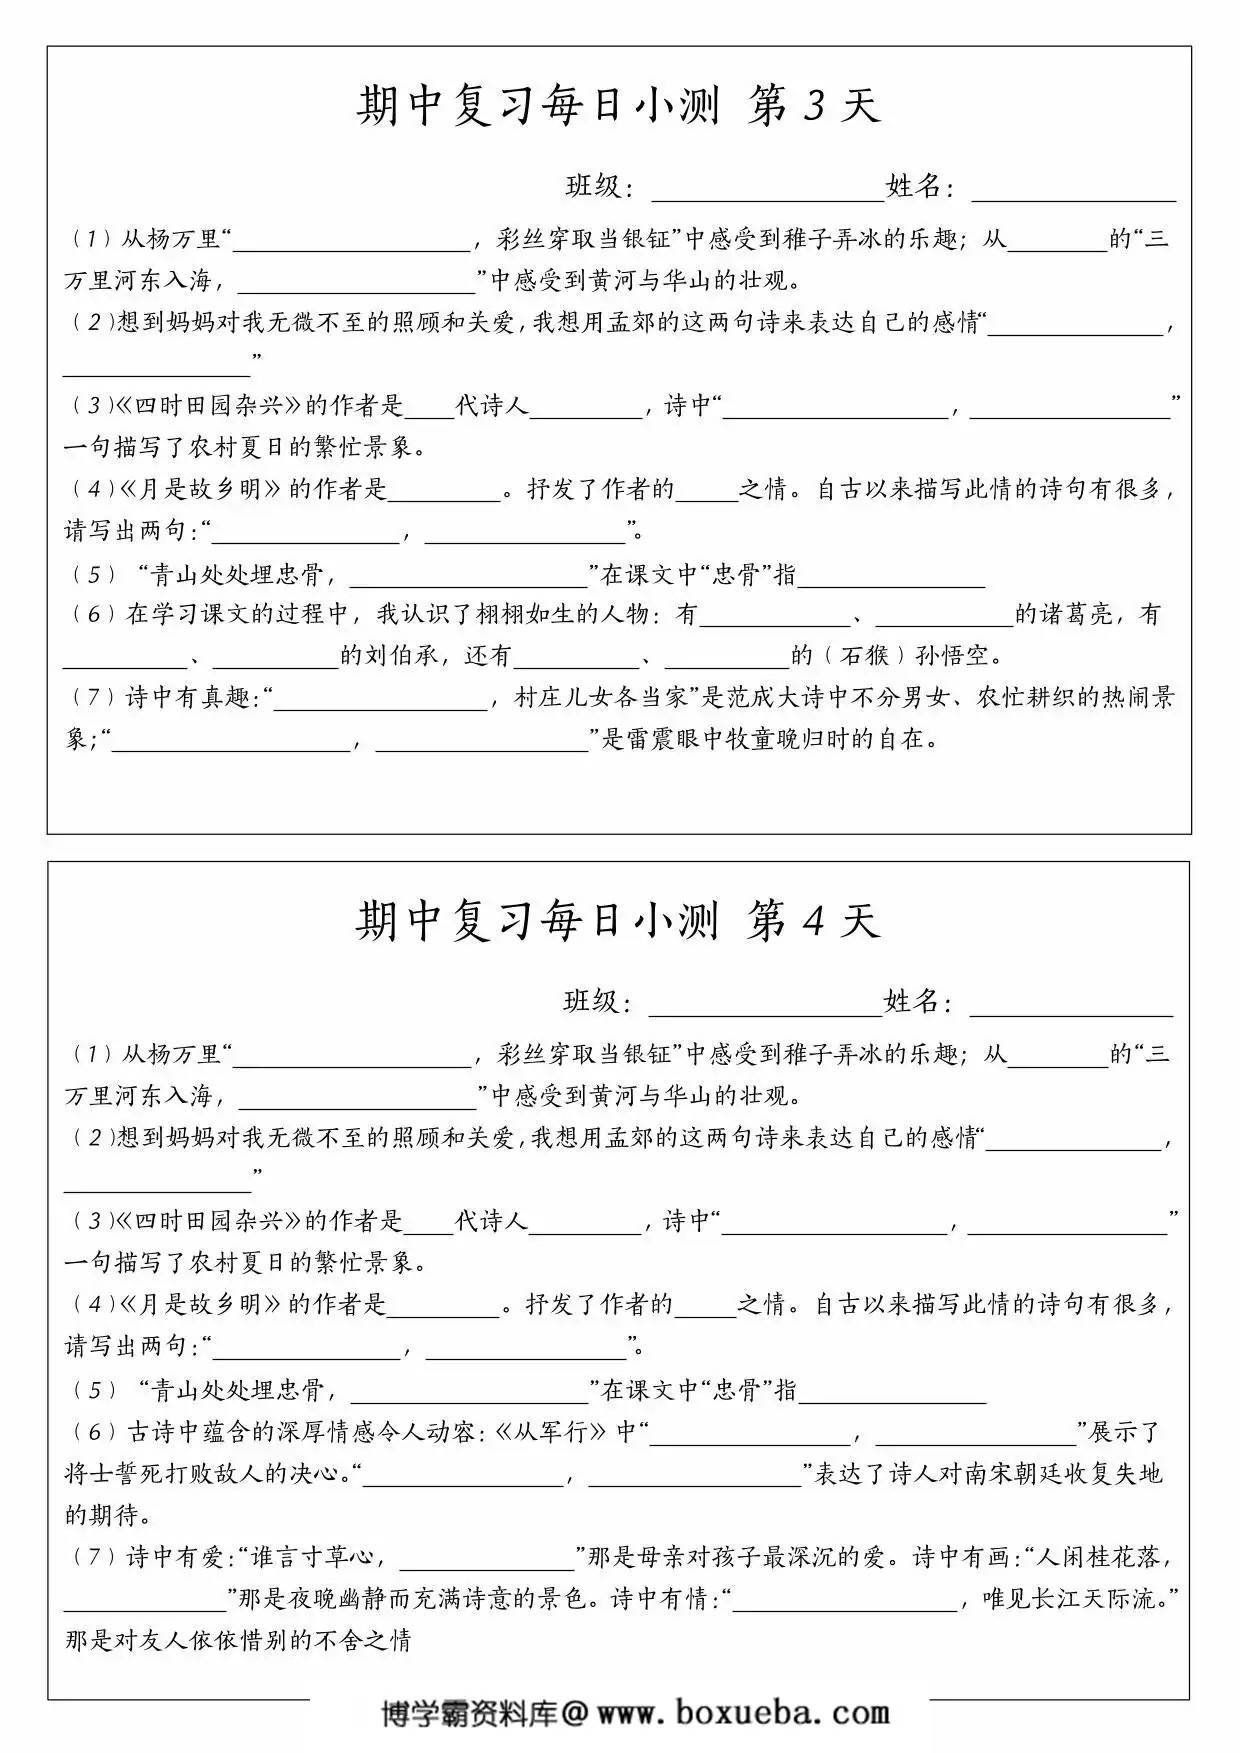 期中复习每日小测 第 3 天
班级：____________姓名：____________
（1）从杨万里“____________，彩丝穿取当银钲”中感受到稚子弄冰的乐趣；从______的“三
万里河东入海，____________”中感受到黄河与华山的壮观。
（2）想到妈妈对我无微不至的照顾和关爱，我想用孟郊的这两句诗来表达自己的感情“__________，
____________”
（3）《四时田园杂兴》的作者是____代诗人________，诗中“____________，____________”
一句描写了农村夏日的繁忙景象。
（4）《月是故乡明》的作者是________。抒发了作者的_____之情。自古以来描写此情的诗句有很多，
请写出两句：“____________，____________”。
（5） “青山处处埋忠骨，____________”在课文中“忠骨”指____________
（6）在学习课文的过程中，我认识了栩栩如生的人物：有__________、__________的诸葛亮，有
__________、__________的刘伯承，还有__________、__________的（石猴）孙悟空。
（7）诗中有真趣：“____________，村庄儿女各当家”是范成大诗中不分男女、农忙耕织的热闹景
象；“____________，____________”是雷震眼中牧童晚归时的自在。
期中复习每日小测 第 4 天
班级：____________姓名：____________
（1）从杨万里“____________，彩丝穿取当银钲”中感受到稚子弄冰的乐趣；从______的“三
万里河东入海，____________”中感受到黄河与华山的壮观。
（2）想到妈妈对我无微不至的照顾和关爱，我想用孟郊的这两句诗来表达自己的感情“__________，
____________”
（3）《四时田园杂兴》的作者是____代诗人________，诗中“____________，____________”
一句描写了农村夏日的繁忙景象。
（4）《月是故乡明》的作者是________。抒发了作者的_____之情。自古以来描写此情的诗句有很多，
请写出两句：“____________，____________”。
（5） “青山处处埋忠骨，____________”在课文中“忠骨”指____________
（6）古诗中蕴含的深厚情感令人动容：《从军行》中“____________，____________”展示了
将士誓死打败敌人的决心。“____________，____________”表达了诗人对南宋朝廷收复失地
的期待。
（7）诗中有爱：“谁言寸草心，____________”那是母亲对孩子最深沉的爱。诗中有画：“人闲桂花落，
__________”那是夜晚幽静而充满诗意的景色。诗中有情：“____________，唯见长江天际流。”
那是对友人依依惜别的不舍之情
博学霸资料库@www.boxueba.com